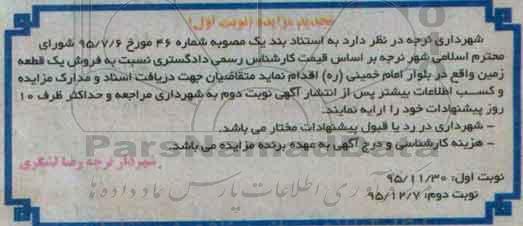 تجدید مزایده (نوبت اول)
شهرداری نرجه در نظر دارد به استناد بند یک مصوبه شماره ۴۶ مورخ ۹۵/۷/۶ شورای
محترم اسلامی شهر نرجه بر اساس قیمت کارشناس رسمی دادگستری نسبت به فروش یک قطعه
زمین واقع در بلوار امام خمینی (ره) اقدام نماید متقاضیان جهت دریافت اسناد و مدارک مزایده
و کسب اطلاعات بیشتر پس از انتشار آگهی نوبت دوم به شهرداری مراجعه و حداکثر ظرف ۱۰
روز پیشنهادات خود را ارایه نمایند.
- شهرداری در رد یا قبول پیشنهادات مختار می باشد.
- هزینه کارشناسی و درج آگهی به عهده برنده مزایده می باشد.
شهردار نرجه رضا لشگری
نوبت اول: ۹۵/۱۱/۳۰
نوبت دوم: ۹۵/۱۲/۷
ParsNamadData
فن آوری اطلاعات پارس نماد داده ها